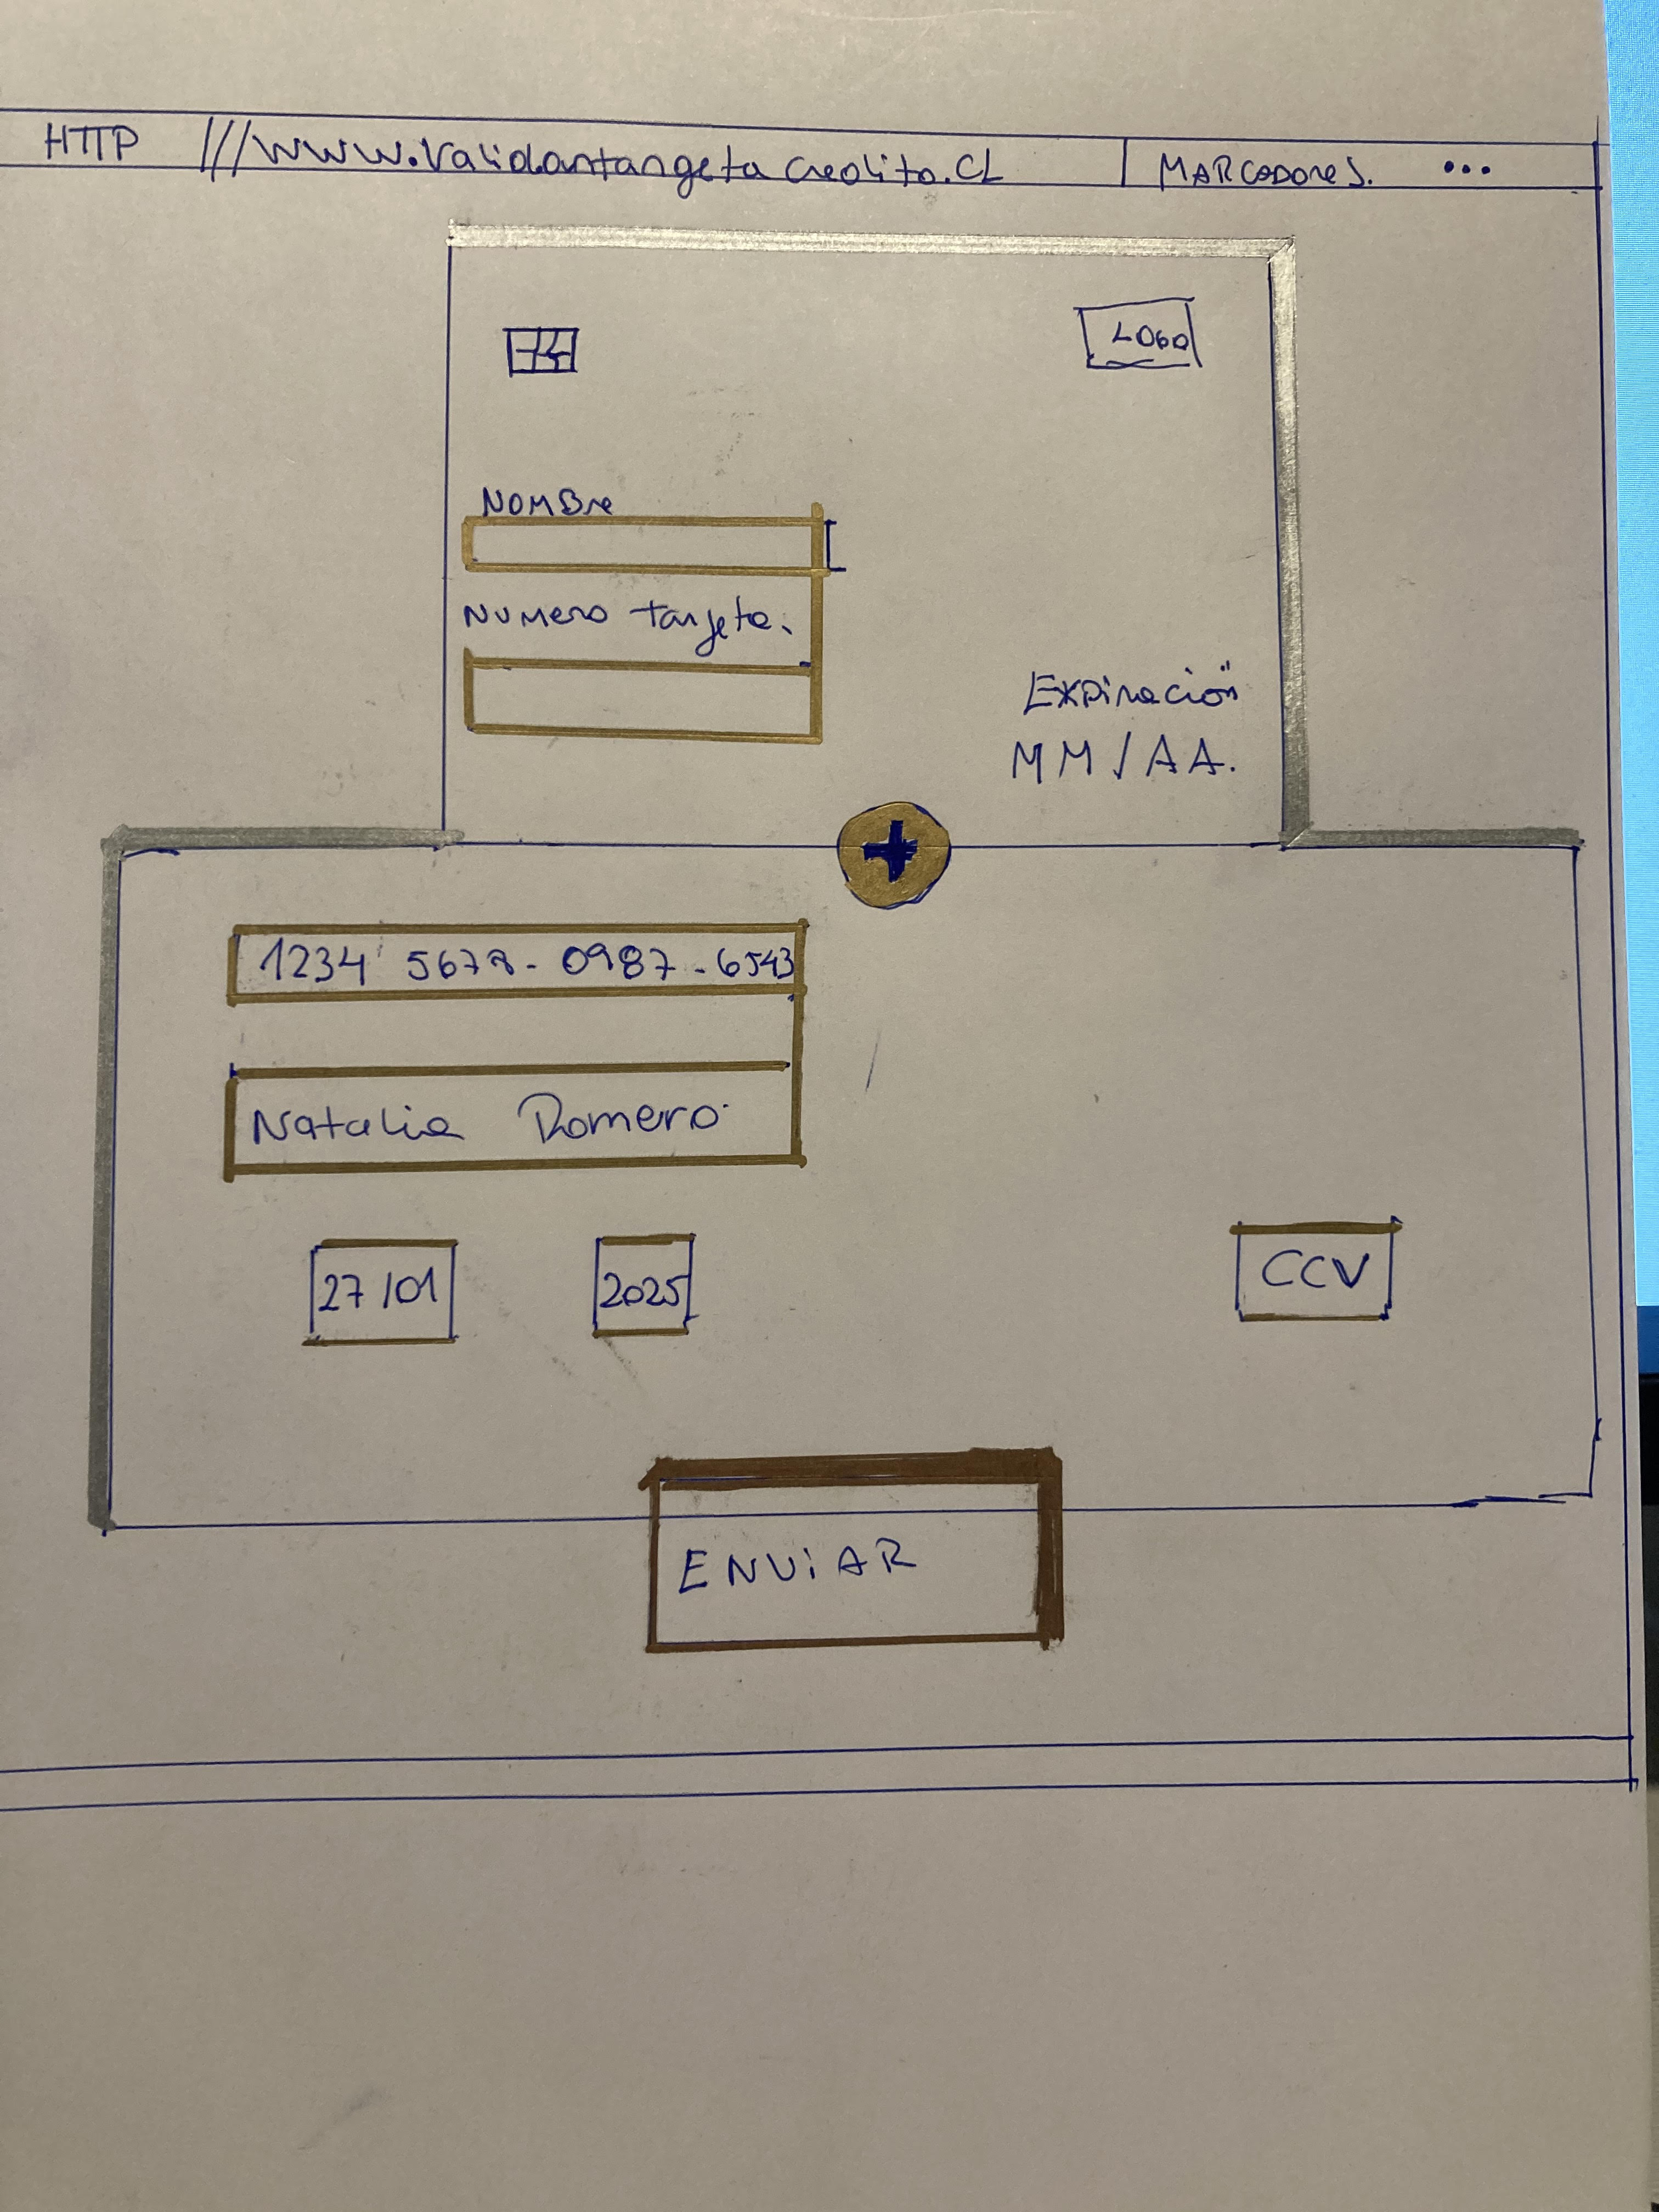 HTTP ///www.validartargetacredito.CL MARCADORES. ...
LOGO
NOMBre
NUMERO targeta.
EXPiración
MM/AA.
+
1234 5678 - 0987 - 6543
Natalia Romero
27/01 2025 CCV
ENViAR